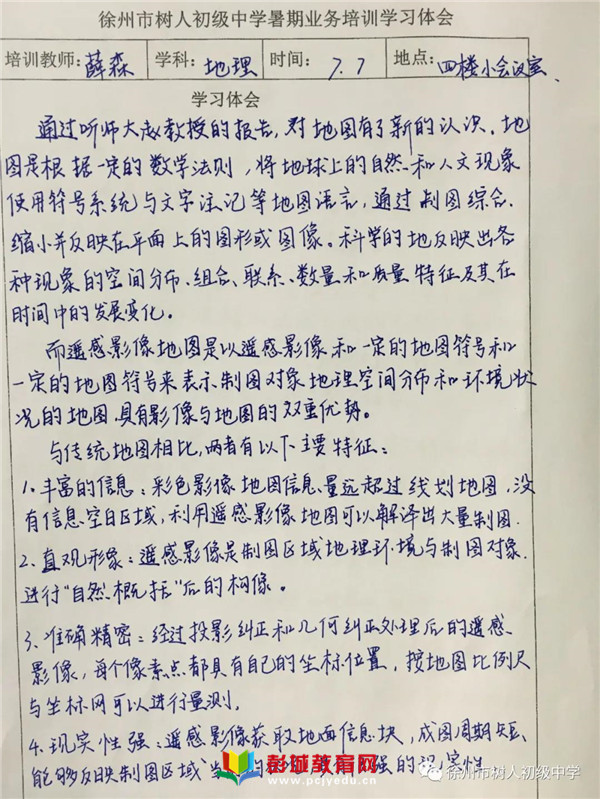 徐州市树人初级中学暑期业务培训学习体会
培训教师: 薛森 学科: 地理 时间: 7.7 地点: 四楼小会议室.
学习体会
通过听师大赵教授的报告, 对地图有了新的认识. 地
图是根据一定的数学法则, 将地球上的自然和人文现象
使用符号系统与文字注记等地图语言, 通过制图综合.
缩小并反映在平面上的图形或图像。科学的地反映出各
种现象的空间分布、组合、联系、数量和质量特征及其在
时间中的发展变化。
而遥感影像地图是以遥感影像和一定的地图符号和
一定的地图符号来表示制图对象地理空间分布和环境状
况的地图.具有影像与地图的双重优势。
与传统地图相比,两者有以下主要特征:
1.丰富的信息: 彩色影像地图信息量远超过线划地图, 没
有信息空白区域, 利用遥感影像地图可以解译出大量制图.
2.直观形象: 遥感影像是制图区域地理环境与制图对象.
进行"自然概括"后的构像。
3、准确精密: 经过投影纠正和几何纠正处理后的遥感
影像, 每个像素点都具有自己的坐标位置, 按地图比例尺
与坐标网可以进行量测.
4.现实性强: 遥感影像获取地面信息块, 成图周期短、
能够反映制图区域当 强的现实性.
彭城教育网
www.pcjyedu.cn
徐州市树人初级中学